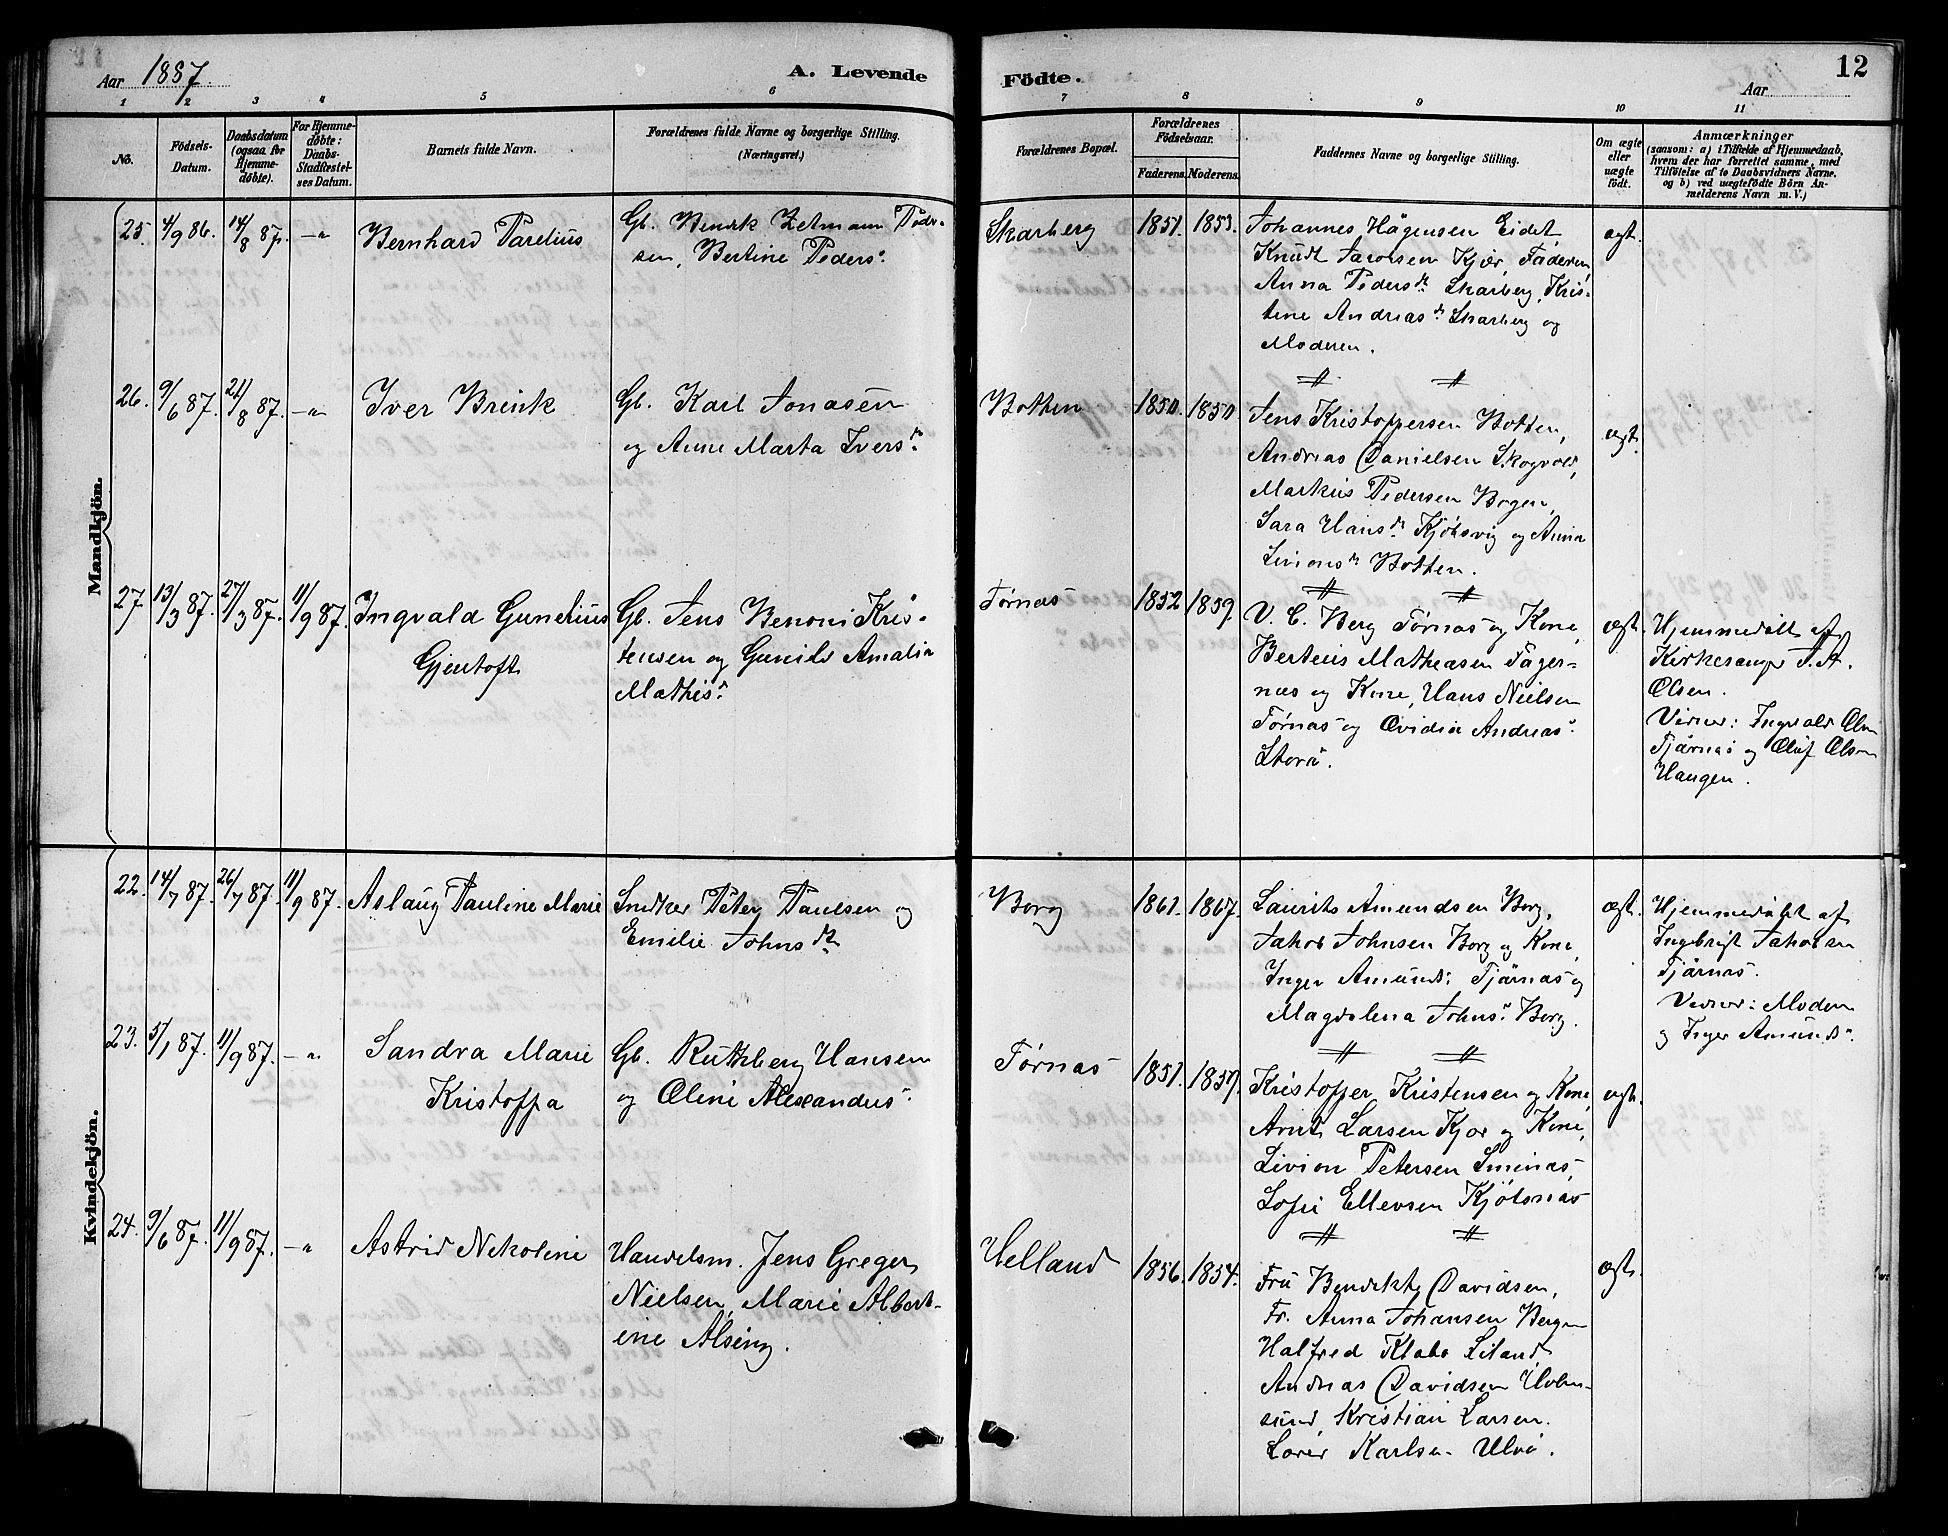 Aar 1887.
A. Levende
Födte.
12
Aar
1 2 3 4 5 6 7 8 9 10 11
No.
Födsels-
Datum.
Daabsdatum
(ogsaa for
Hjemme-
döbte).
For Hjemme-
døbte:
Daabs-
Stadfæstel-
ses Datum.
Barnets fulde Navn.
Forældrenes fulde Navne og borgerlige Stilling.
(Næringsvei.)
Forældrenes Bopæl.
Forældrenes
Födselsaar.
Faderens. Moderens.
Faddernes Navne og borgerlige Stilling.
Om ægte
eller
uægte
födt.
Anmærkninger
(saasom: a) i Tilfælde af Hjemmedaab,
hvem der har forrettet samme, med
Tilföielse af to Daabsvidners Navne,
og b) ved uægtefödte Börn An-
melderens Navn m. V.)
Mandkjön.
25. 4/9 86. 14/8 87. -"-
Bernhard Parelius
Gb. Henrik Zelmann Peder-
sen, Bertine Peders.
Skarberg
1851. 1853.
Johannes Hågensen Eidet
Knudt Jacobsen Kjær, Faderen,
Anna Pedersdr Skarberg, Kris-
tine Andreasdr Skarberg og
Moderen.
ægt.
26. 9/6 87. 21/8 87. -"-
Iver Brink
Gb. Karl Jonasen
og Anne Marta Iversdr
Botten
1850. 1850
Jens Kristoffersen Botten,
Andreas Danielsen Skogvold,
Markus Pedersen Bogen,
Sara Hansdr Kjøbsvig og Anna
Livionsdr Botten.
ægt.
27. 13/3 87. 27/3 87. 11/9 87.
Ingvald Gunerius
Gjentoft
Gb. Jens Benoni Kris-
tensen og Gunild Amalia
Mathis.
Tørnæs
1852 1859.
V. C. Berg Tørnæs og Kone,
Berteus Matheasen Fager-
næs og Kone, Hans Nielsen
Tørnæs og Ovidia Andreas.
Storå.
ægt.
Hjemmedøbt af
Kirkesanger J. A.
Olsen.
Vidner: Ingvald Olsen
Tjärnæs og Oluf Olsen
Haugen.
Kvindekjön.
22. 14/7 87. 26/7 87. 11/9 87.
Aslaug Pauline Marie
Snedker Peter Paulsen og
Emilie Johnsdr
Borg
1861. 1867.
Laurits Amundsen Borg,
Jakob Johnsen Borg og Kone,
Inger Amunds. Tjärnæs og
Magdalena Johns. Borg.
ægt.
Hjemmedøbt af
Ingebrigt Jakobsen
Tjärnæs.
Vidner: Moderen
og Inger Amunds.
23. 5/1 87. 11/9 87. -"-
Sandra Marie
Kristoffa
Gb. Rutsberg Hansen
og Oline Alexanders.
Tørnæs
1851. 1857.
Kristoffer Kristensen og Kone,
Arnt Larsen Kjær og Kone,
Livion Petersen Sminæs,
Sofie Ellevsen Kjöbsnæs
ægt.
24. 9/6 87. 11/9 87. -"-
Astrid Nikoline
Handelsm. Jens Greger
Nielsen, Marie Albert-
ine Alsing.
Helland
1856. 1854.
Fru Bendikte Davidsen,
Fr. Anna Johansen Bergen
Halfred Klabo Liland,
Andreas Davidsen Holm-
sund, Kristian Larsen.
Karlsen Ulvö.
ægt.